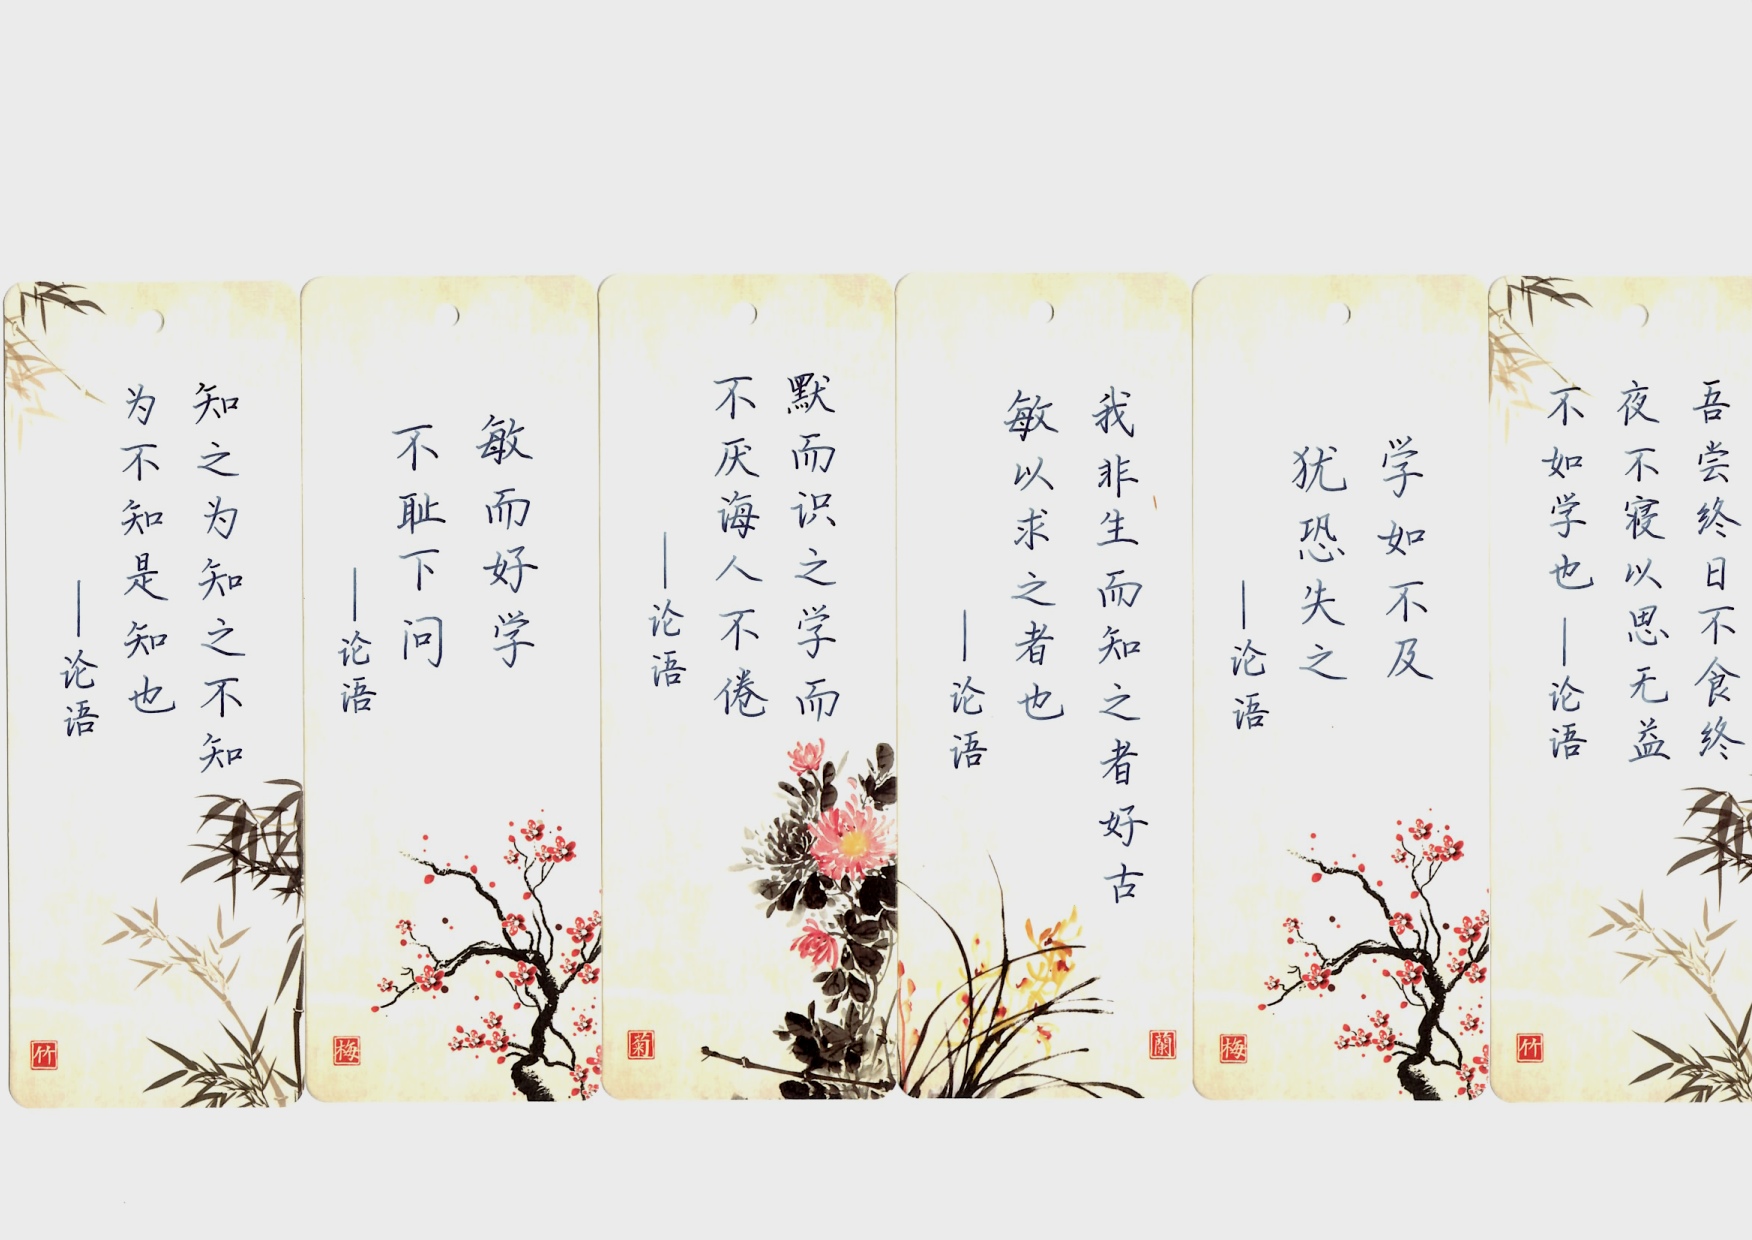 知之为知之不知
为不知是知也
——论语
竹
敏而好学
不耻下问
——论语
梅
默而识之学而
不厌诲人不倦
——论语
菊
我非生而知之者好古
敏以求之者也
——论语
蘭
学如不及
犹恐失之
——论语
梅
吾尝终日不食终
夜不寝以思无益
不如学也——论语
竹